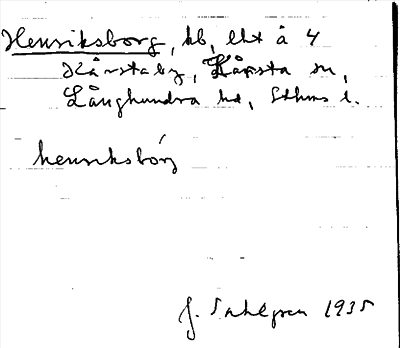 Henriksborg, hb, lht å 4
Kårsta by, Kårsta sn,
Långhundra hd, Sthms l.
henriksbórg
J. Sahlgren 1935